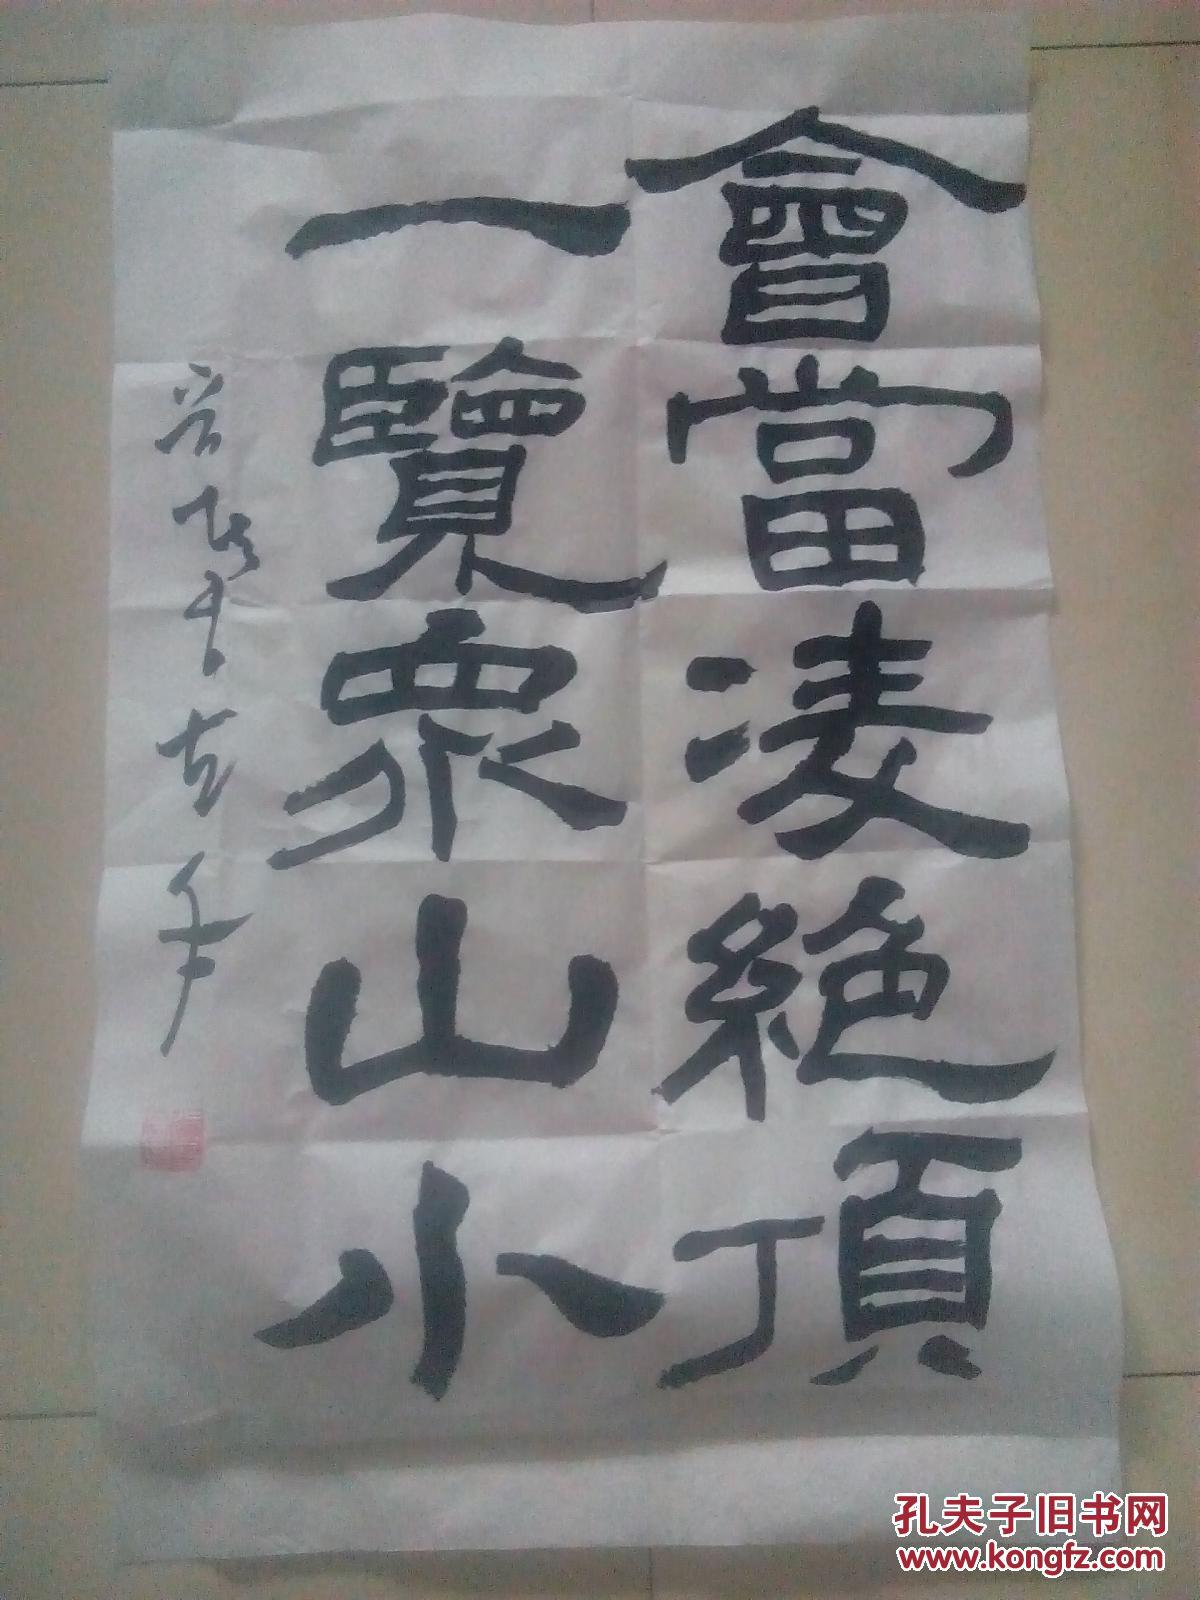 會當凌絕頂
一覽衆山小
孔夫子旧书网
www.kongfz.com